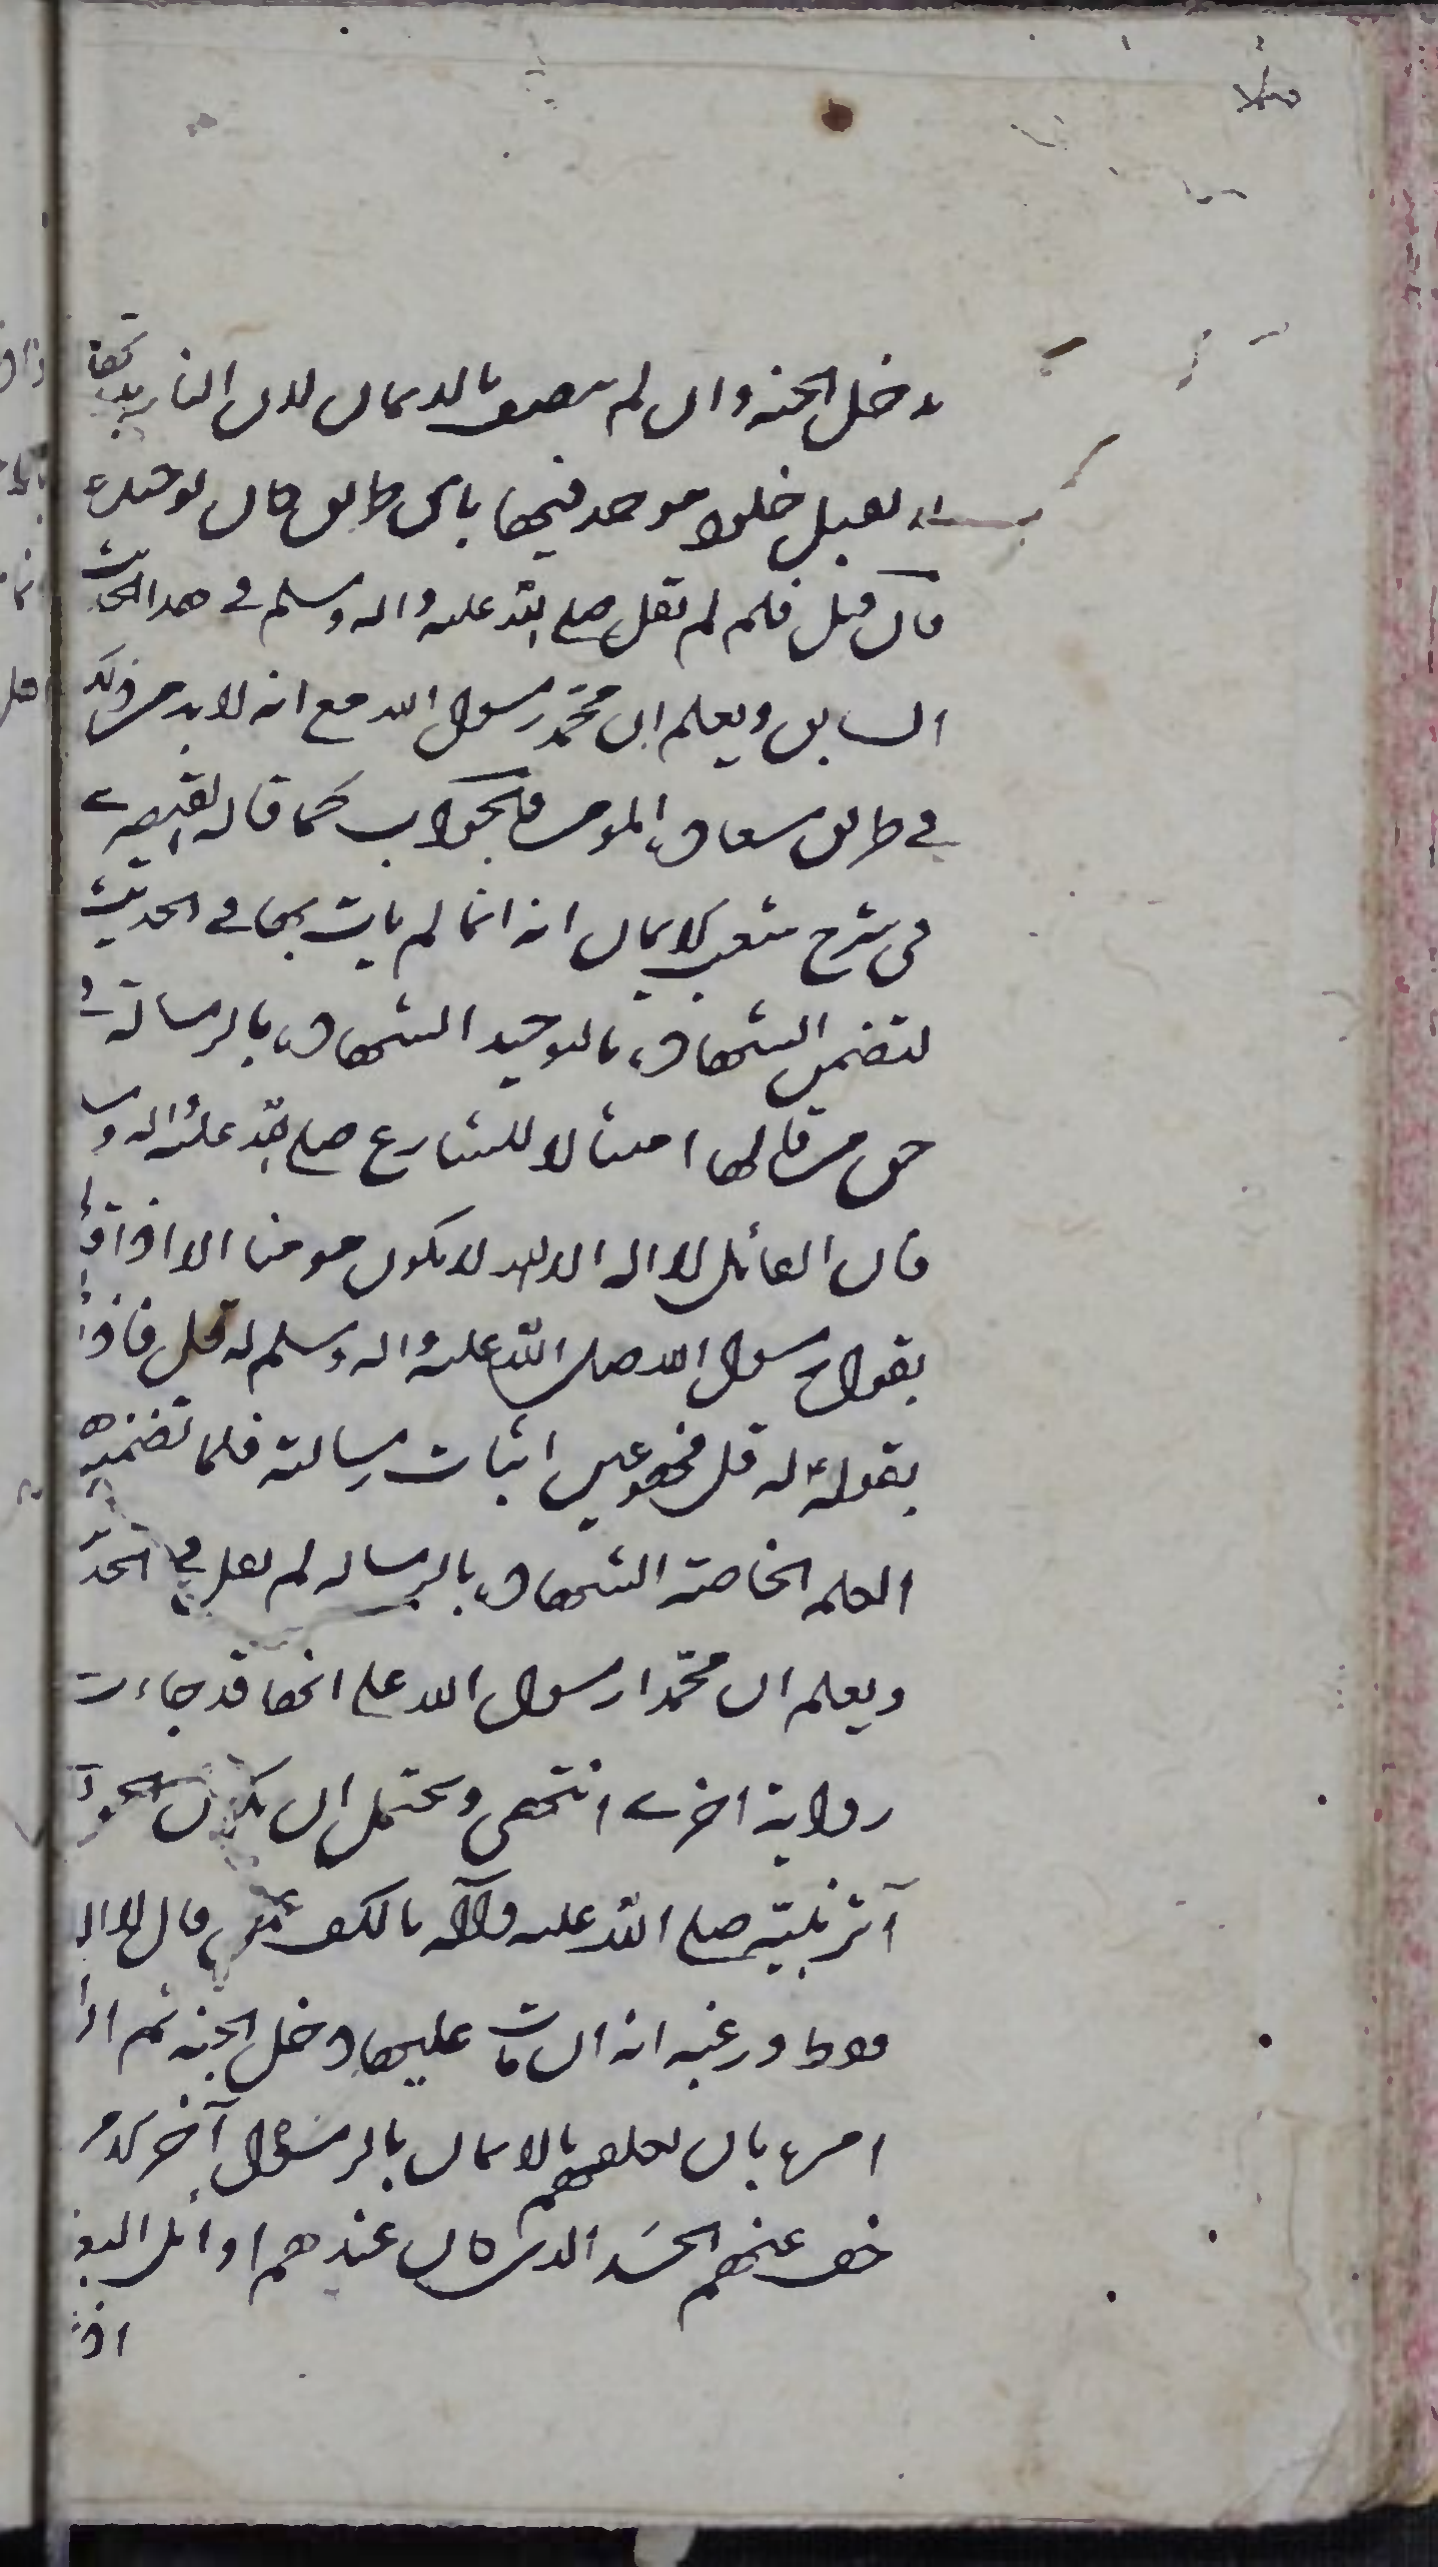 يدخل الجنة وان لم يتصف بالايمان لان النار بذاتها
لا تقبل خلود موحد فيها باى طريق كان توحيده
فان قيل فلم لم يقل صلى الله عليه واله وسلم فى هذا الحديث
السابق ويعلم ان محمد رسول الله مع انه لا بد من ذلك
فى طريق سعادة المومن فالجواب كما قاله القيصرى
فى شرح شعب الايمان انه انما لم يات بها فى الحديث
لتضمن الشهادة بالتوحيد الشهادة بالرسالة فى
حق من قالها امتثالا للشارع صلى الله عليه واله وس
فان القائل لا اله الا الله لا يكون مومنا الا اذا قالها
بقول رسول الله صلى الله عليه واله وسلم له قل فاذا
بقوله له قل فهو عين اثبات رسالته فلما تضمنت هذه
الكلمه الخاصة الشهادة بالرساله لم يقل فى الحد
ويعلم ان محمدا رسول الله على انها قد جاءت
رواية اخرى انتهى ويحتمل ان يكون الجوا
آثر نبيه صلى الله عليه وآله بالكف عمن قال لا اله
فقط ورغبه انه ان مات عليها دخل الجنه ثم اذا
امره بان يكلفهم بالايمان بالرسول آخر لامر
خف عنهم الحسد الذى كان عندهم اوائل البعثه
اذ